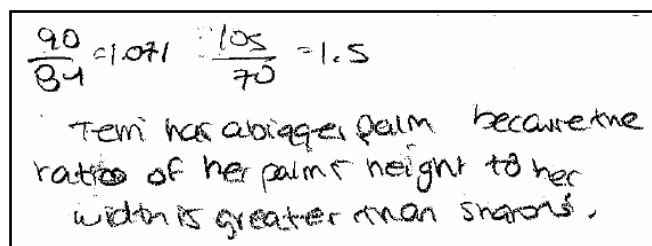 90/84 =1.071 105/70 =1.5
Terri has a bigger palm because the
ratio of her palms height to her
width is greater than sharons.